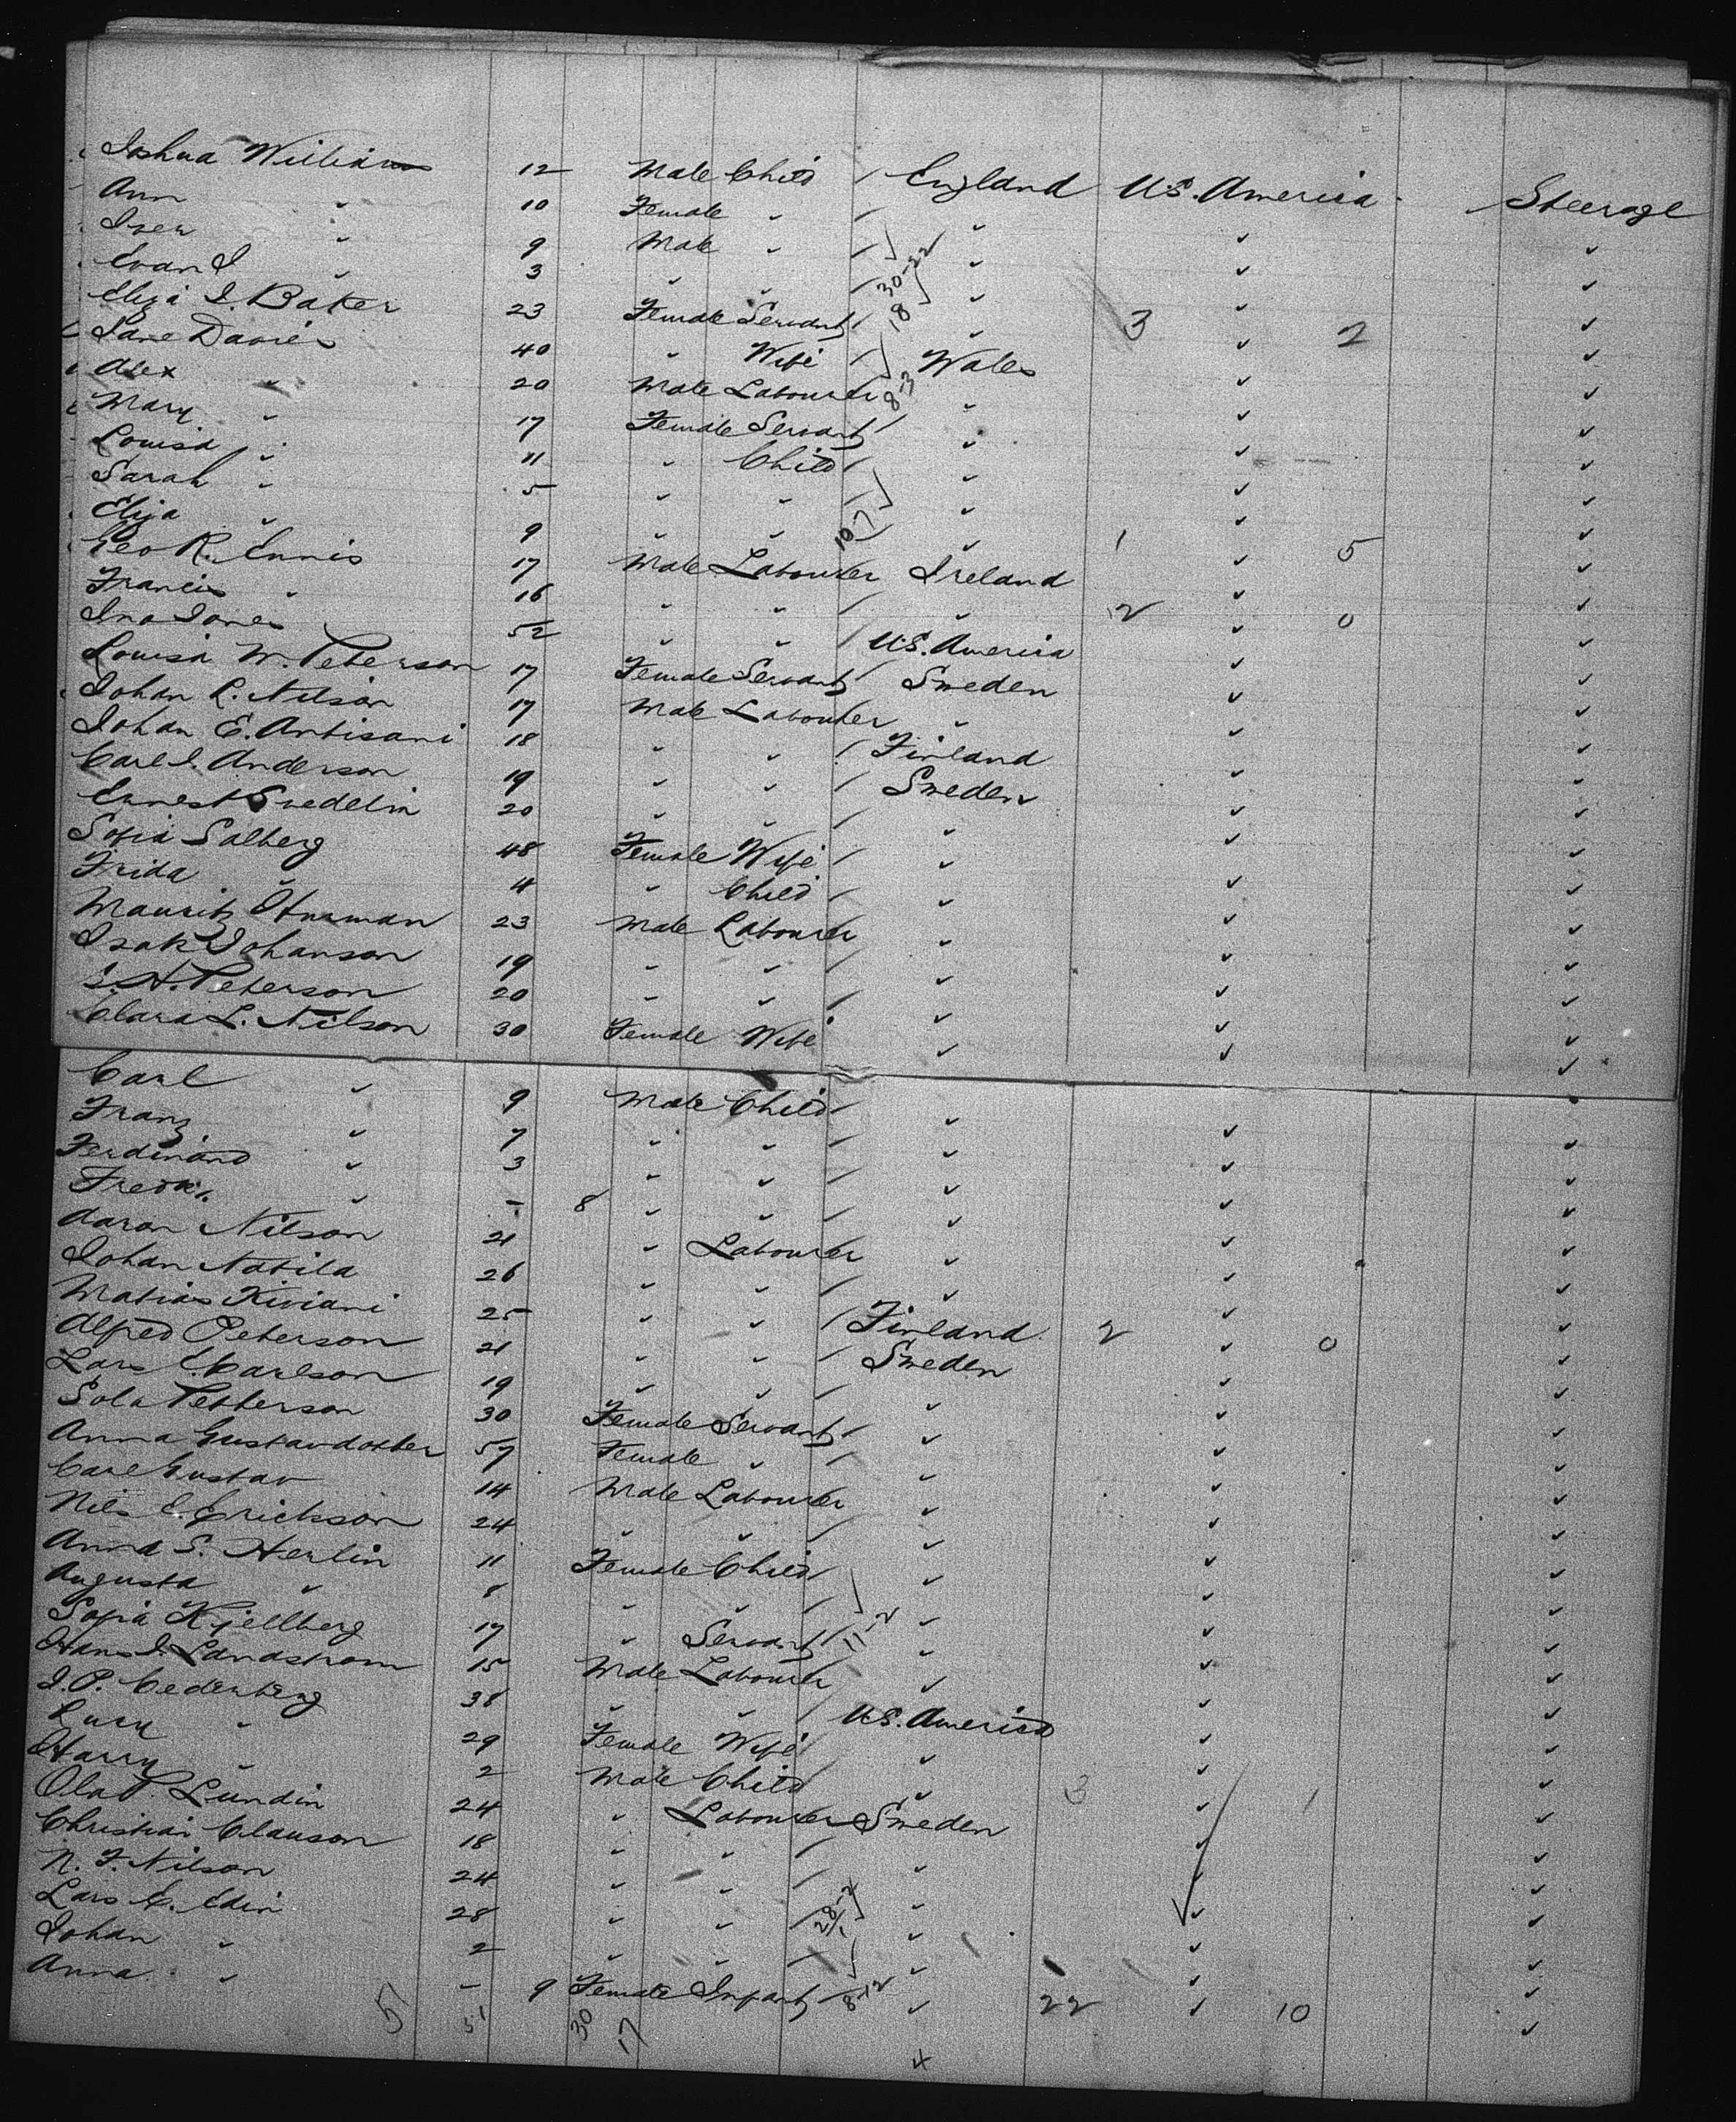 Joshua Williams 12 Male Child / England U.S. America Steerage
Ann " 10 Female " / " " "
" 9 Male " / " " "
Evan J " 3 " " / " " "
Eliza J. Baker 23 Female Servant / " 3 " 2 "
Jane Davies 40 " Wife / Wales " "
Alex " 20 Male Labourer " " "
Mary " 17 Female Servant / " " "
Louisa " 11 " Child / " " "
Sarah " 5 " " / " " "
Eliza " 9 " " / " 1 " 5 "
Geo R. Ennis 17 Male Labourer Ireland " "
Francis " 16 " " / " 2 " 0 "
Jno Jones 52 " " / U.S. America " "
Louisa W. Peterson 17 Female Servant / Sweden " "
Johan L. Nilson 17 Male Labourer " " "
Johan E. Antisani 18 " " / Finland " "
Carl J. Anderson 19 " " / Sweden " "
Ernest Svedelin 20 " " / " " "
Sofia Salberg 48 Female Wife / " " "
Frida " 4 " Child / " " "
Mauritz 23 Male Labourer " " "
Isak Johanson 19 " " / " " "
S. A. Peterson 20 " " / " " "
Clara L. Nilson 30 Female Wife " " "
Carl " 9 Male Child / " " "
Franz " 7 " " / " " "
Ferdinand " 3 " " / " " "
Fredk. " - 8 " " / " " "
Aaron Nilson 21 " Labourer " " "
Johan Natila 26 " " / " " "
Matias Kiviani 25 " " / Finland 2 " 0 "
Alfred Peterson 21 " " / Sweden " "
Lars E. Carlson 19 " " / " " "
Petterson 30 Female Servant / " " "
Anna Gustavdotter 57 Female " / " " "
Carl Gustav 14 Male Labourer " " "
Nils E. Erickson 24 " " / " " "
Anna S. Herlin 11 Female Child / " " "
Augusta " 8 " " / " " "
Sofia Kjellberg 17 " Servant / 11-2 " " "
Hans J. Landstrom 15 Male Labourer " " "
J. P. Cederberg 38 " " / U.S. America " "
Lucy " 29 Female Wife / " " "
Harry " 2 Male Child / " 3 " 1 "
Ola P. Lundin 24 " Labourer Sweden " "
Christian Clauson 18 " " / " " "
N. F. Nilson 24 " " / " " "
Lars E. Edin 28 " " / 28-2 " " "
Johan " 2 " " / " " "
Anna " - 9 Female Infant / 8-12 " 22 " 10 "
51 51 30 17 4